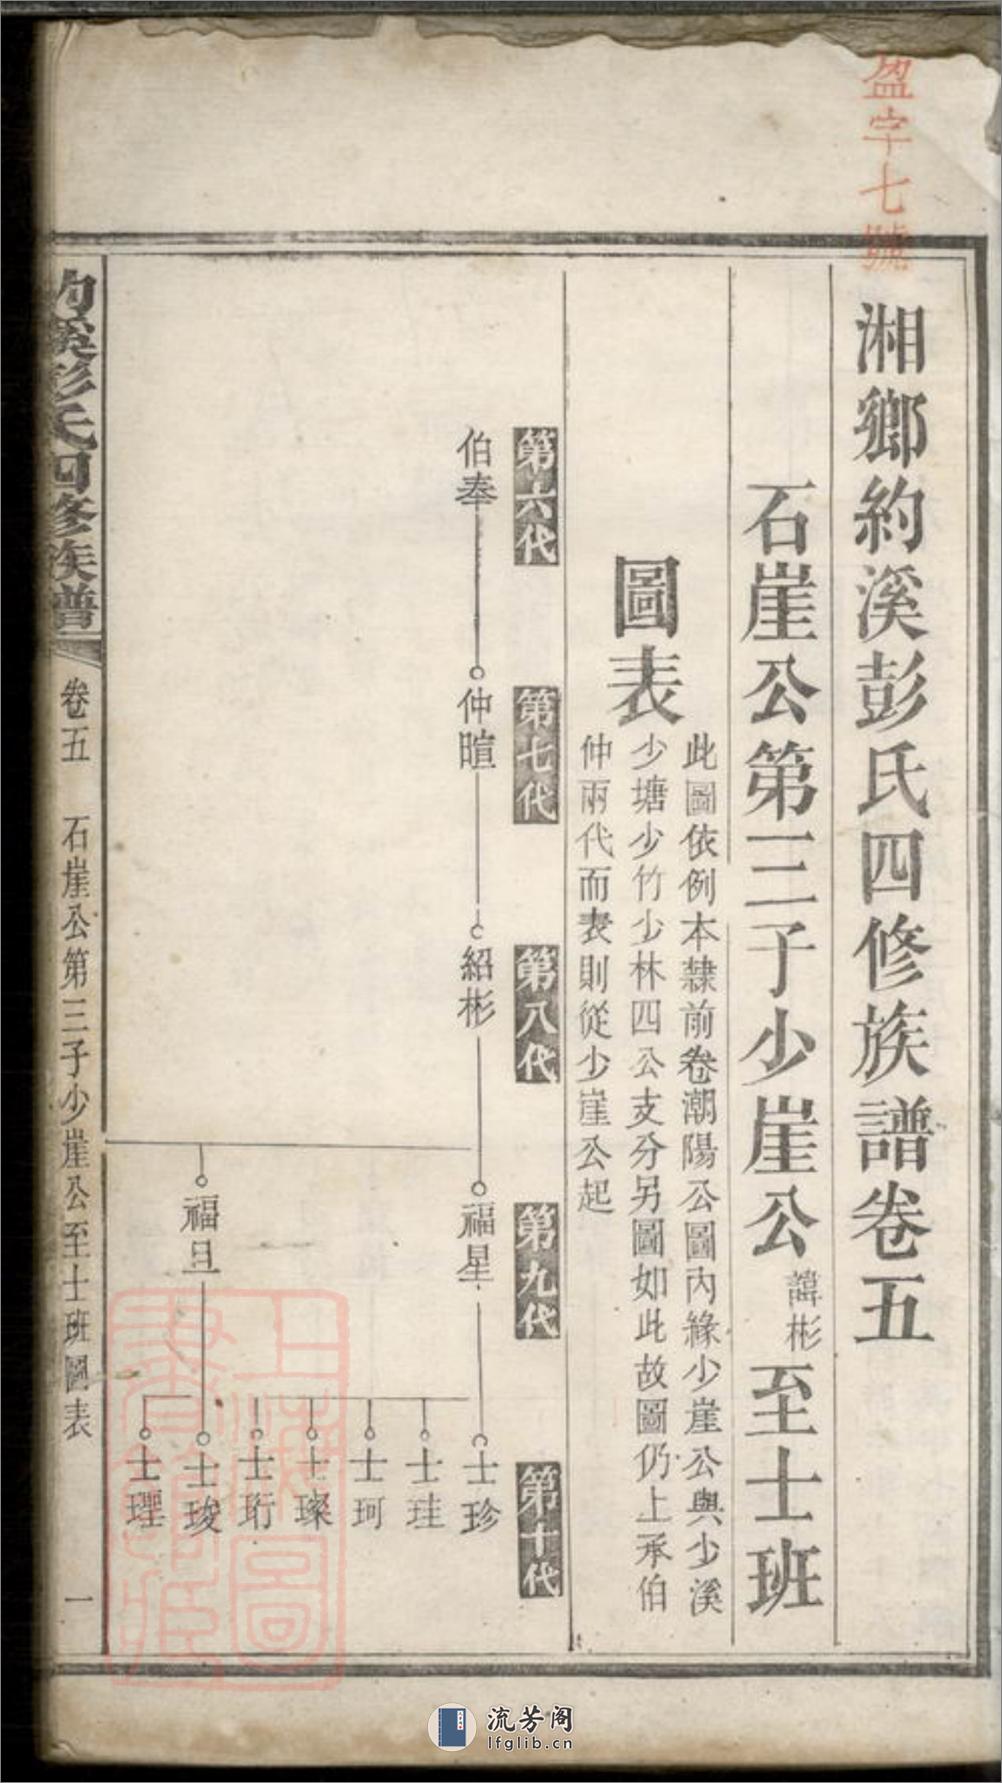 盈字七號
湘鄉約溪彭氏四修族譜卷五
石崖公第三子少崖公諱彬至士班
圖表
此圖依例本隸前卷潮陽公圖內緣少崖公與少溪
少塘少竹少林四公支分另圖如此故圖仍上承伯
仲兩代而表則從少崖公起
第六代
第七代
第八代
第九代
第十代
伯奉
仲暄
紹彬
福星
士珍
士珪
士珂
士璨
士珩
福旦
士琝
士理
約溪彭氏四修族譜
卷五
石崖公第三子少崖公至士班圖表
一
上海圖書館藏
流芳阁
lfglib.cn